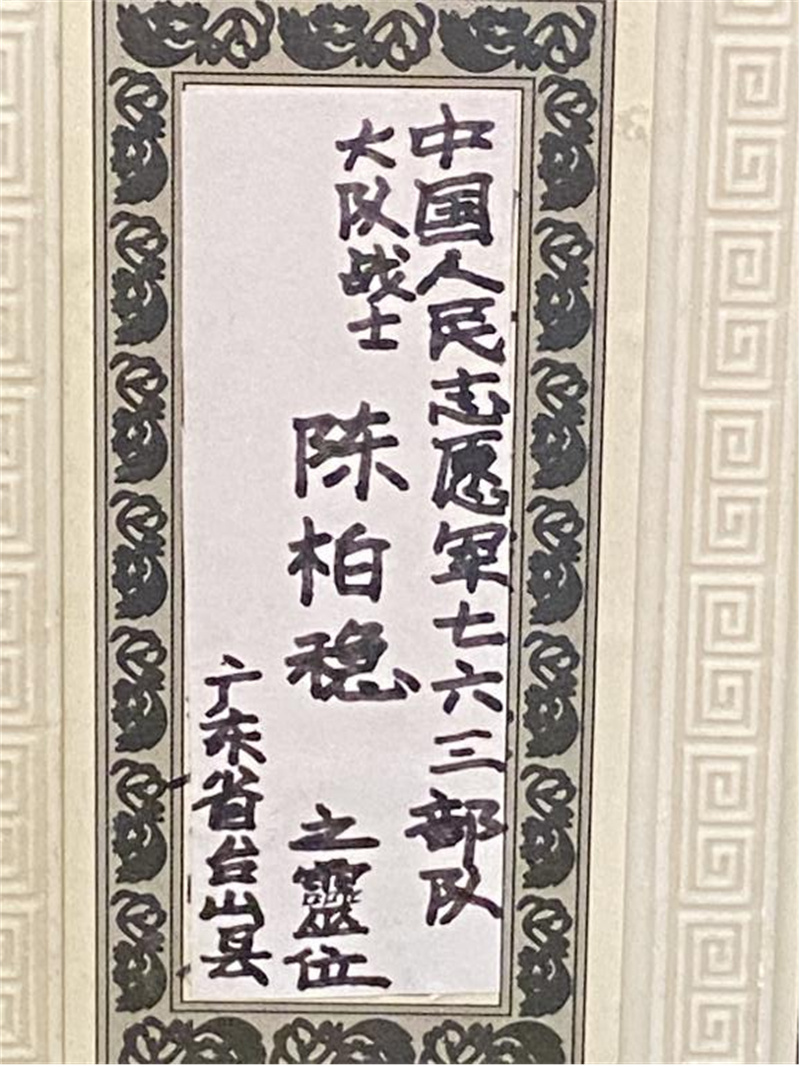 中国人民志愿军七六三部队
大队战士
陈柏稳之靈位
广东省台山县